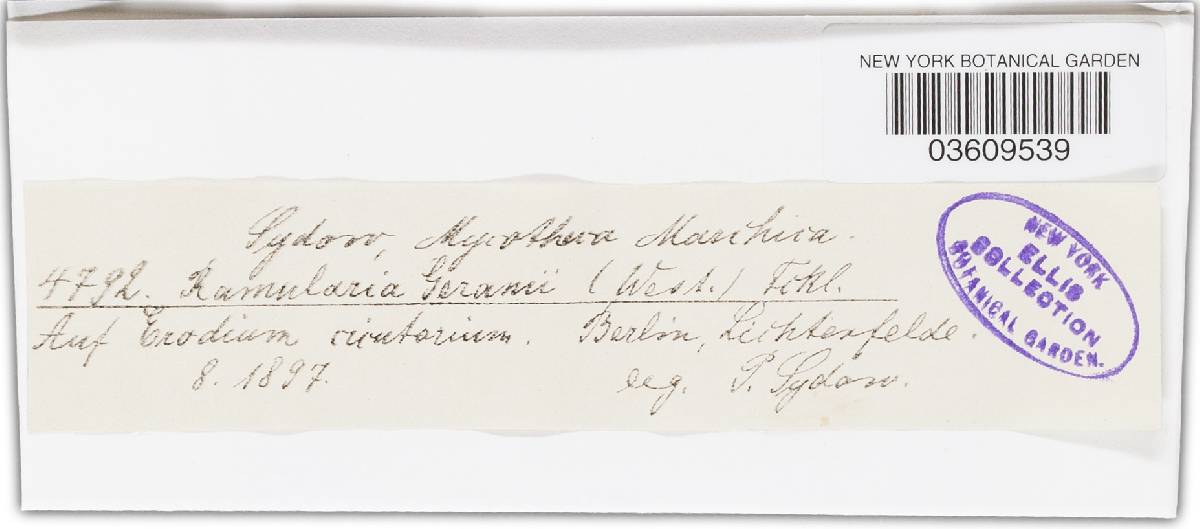 NEW YORK BOTANICAL GARDEN
03609539
Sydow, Mycotheca Marchica.
4792. Ramularia Geranii (West.) Fckl.
Auf Erodium cicutarium. Berlin, Lichterfelde.
8. 1897. leg. P. Sydow.
NEW YORK
ELLIS
COLLECTION
BOTANICAL GARDEN.